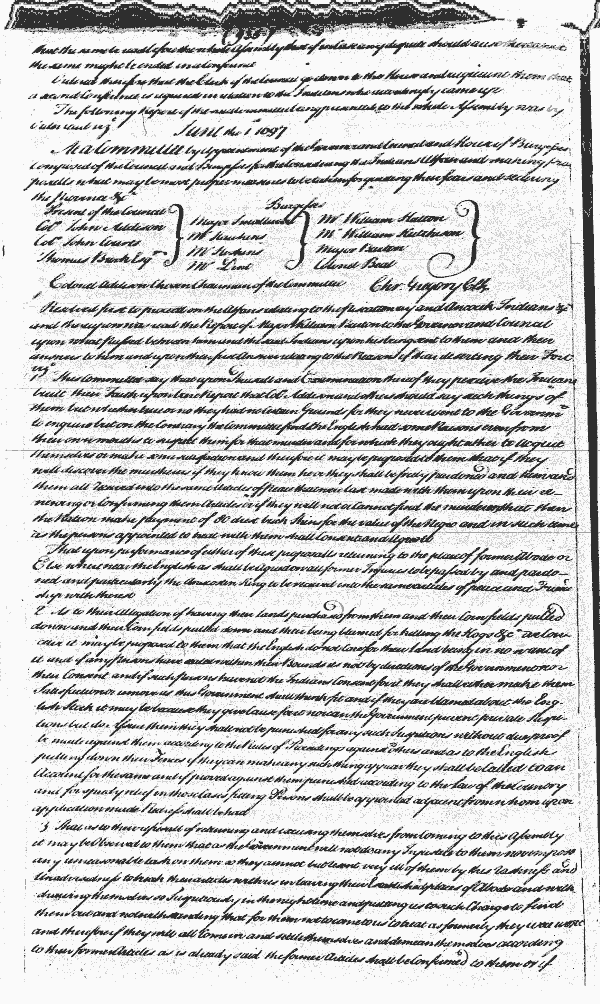 that the same be read before the whole Assembly that if in case any dispute should arise thereabout
the same might be ended in a Conference
Ordered thereupon that the Clerk of the Council go down to the House and acquaint them that
a second Conference is required in relation to the Indians who accordingly came up
The following Report of the said Committee being presented to the whole Assembly was by
Order read viz
June the 1st 1697
At a Committee by appointment of the Governor and Council and House of Burgesses
Composed of the Council and Burgesses for the Considering the Indians Affairs and making pro
posalls what may be most proper measures to be taken for quieting their fears and securing
the province &c
Present of the Council
Colo. John Addison
Colo. John Courts
Thomas Brooke Esqr
Burgesses
Major Smallwood
Mr Hawkins
Mr
Mr
Mr William Hutton
Mr William Hutchison
Major Barton
Colonel Beal
Colonel Addison Chosen Chairman of the Committee Chr. Gregory Clk.
Resolved first to proceed on the Affairs relating to the Piscattaway and Accokik Indians &c
and thereupon was read the Report of Major William Barton to the Governor and Council
upon what passed between him and the said Indians upon his being sent to them and their
answers to them and upon their first Answer relating to the Reasons of their deserting their Fort
viz
1st This Committee say that upon and Examination thereof they perceive the Indians
built their Faith upon bare Report that Colo. Addison and others should say such things of
them but whether true or no they had no Certain Grounds for they never went to the Governor
to enquire but on the Contrary the Committee find the English had some Reasons even from
their own words to suspect them for that murder and for which they ought either to acquit
themselves or make some satisfaction and therefore it may be proposed to them that if they
will discover the murtherers if they know them here they shall be freely pardoned and
them all received into the same Articles of peace that were last made with them upon their re-
newing or Confirming them Articles or if they will not or cannot find the murderers that then
the Nation make payment of 50 drest buck Skins for the value of the Negro and in such time
as the persons appointed to treat with them shall Consent and Agree to
That upon performance of either of these proposalls returning to the place of former Abode or
Else where near the English as shall be agreed on all former Injuries to be passed by and pardo-
ned and particularly the Annacostin King to be received into the same articles of peace and Friend
ship with the rest
2. As to their Allegation of having their lands purchased from them and their Cornfields pulled
down and their Cornfields pulled down and their being blamed for killing the Hogs &c are Con-
ceive it may be proposed to them that the English do not Care for their land being in no want of
it and if any persons have seated within their Bounds it is not by directions of the Government nor
their Consent and if such persons have not the Indians Consent for it they shall either make them
Satisfaction or remove as this Government shall think fit and if they are blamed about the Eng-
lish Stock it may be because they give cause for it nor can the Government prevent private Suspi-
tions but do assure them they shall not be punished for any such Suspitions without due proof
be made against them according to the Rules of Proceedings against others and as to the English
pulling down their Fences if they can make any such thing appear they shall be called to an
Account for the same and if proved against them punished according to the Law of the Country
and for speedy relief in those Cases fitting Persons shall be appointed adjacent from whom upon
application made Redress shall be had
3 That as to their refusall of returning and excusing themselves from Coming to this Assembly
it may be Observed to them that as the Government will not do any Injustice to them nor impose
any unreasonable task on them so they cannot but resent very ill of them by this Rashness and
Unadvisedness to breach their articles with us in leaving their Established places of Abode and with
drawing themselves so Suspitiously in the night time and putting us to such Charge to find
them out and notwithstanding that for them not to come to us to treat as formerly they were wont
and therefore if they will all Come in and settle themselves and demean themselves according
to their former Articles as is already said the former Articles shall be Confirmed to them or if